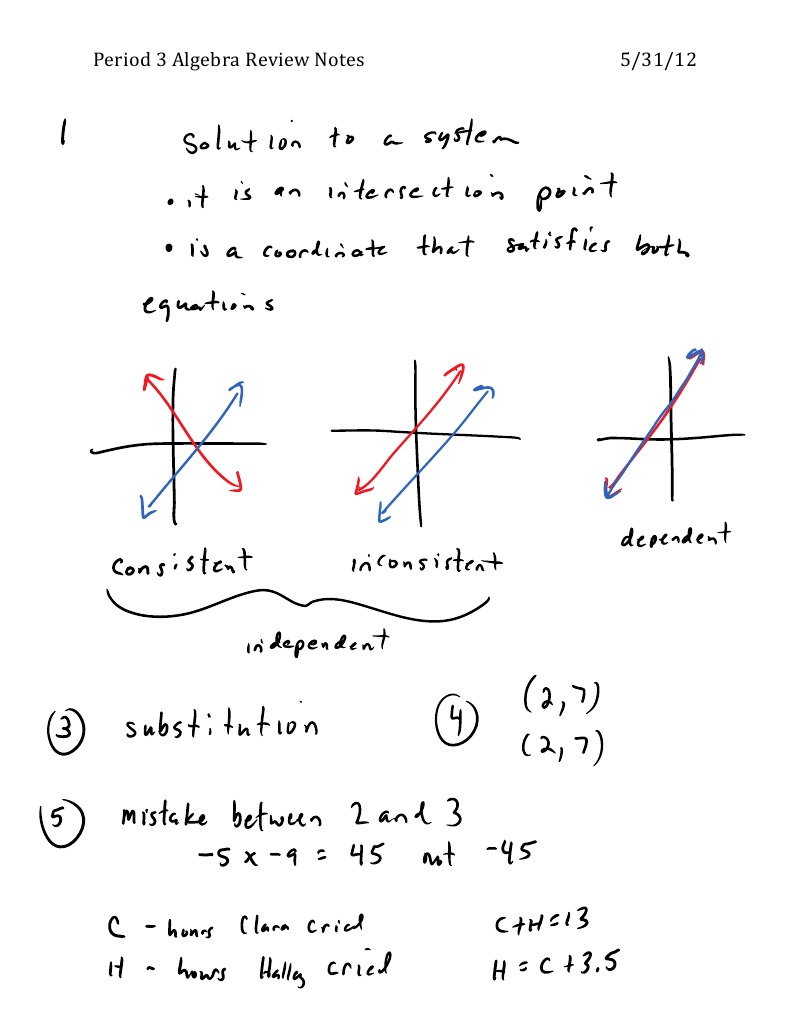 Period 3 Algebra Review Notes 5/31/12
1 Solution to a system
• it is an intersection point
• is a coordinate that satisfies both
equations
consistent inconsistent dependent
independent
3 substitution 4 (2,7)
(2,7)
5 mistake between 2 and 3
-5 x -9 = 45 not -45
C - hours Clara cried C+H=13
H - hours Halley cried H = C+3.5